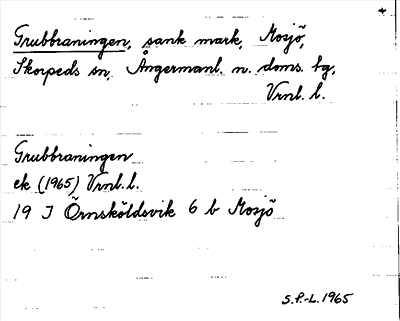 Grubbraningen, sank mark, Mosjö,
Skorpeds sn, Ångermanl. n. doms. bg,
Vrnl. l.
Grubbraningen
ek (1965) Vrnl. l.
19 J Örnsköldsvik 6 b Mosjö
S.P.-L. 1965